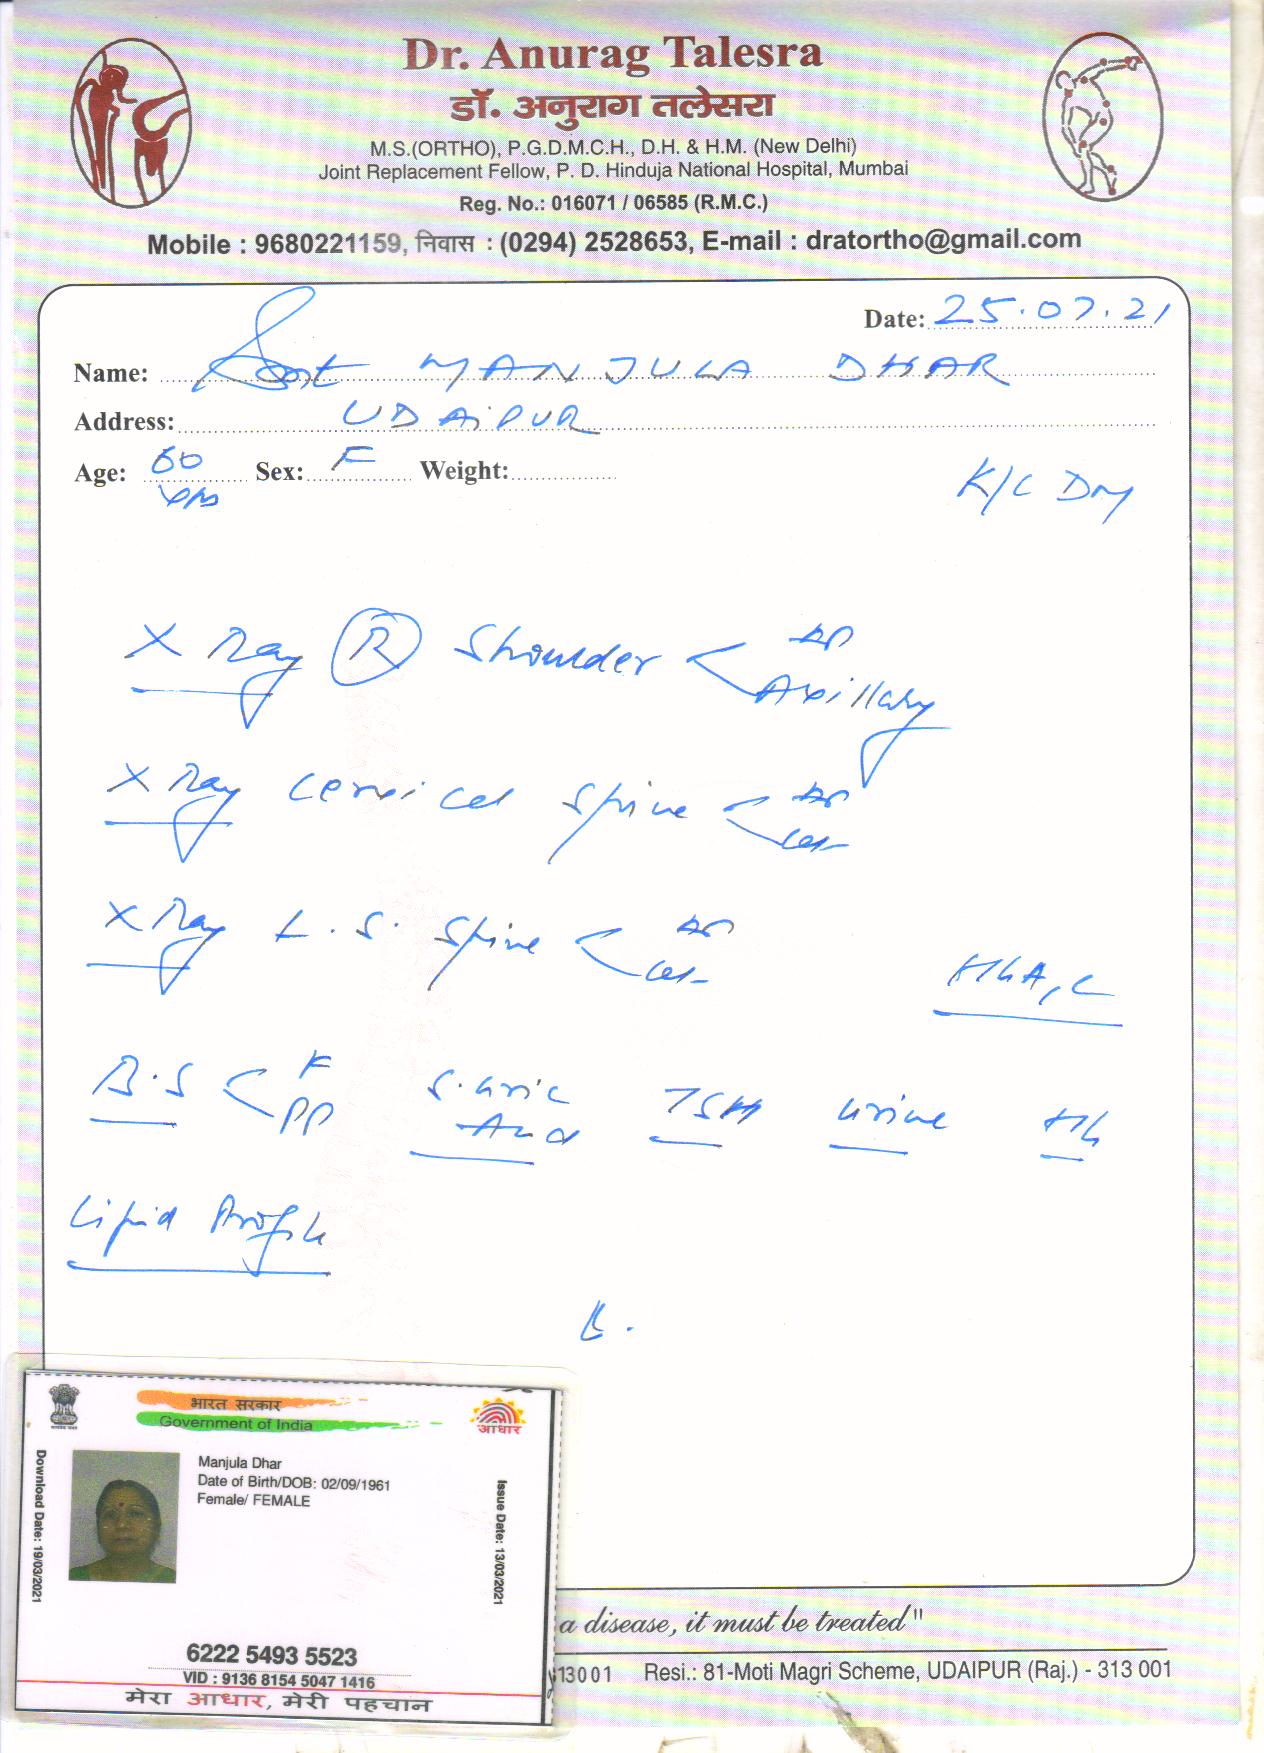 Dr. Anurag Talesra
डॉ. अनुराग तलेसरा
M.S.(ORTHO), P.G.D.M.C.H., D.H. & H.M. (New Delhi)
Joint Replacement Fellow, P. D. Hinduja National Hospital, Mumbai
Reg. No.: 016071 / 06585 (R.M.C.)
Mobile : 9680221159, निवास : (0294) 2528653, E-mail : dratortho@gmail.com
Date: 25.07.21
Name: Smt MANJULA DHAR
Address: UDAiPUR
Age: 60 yrs Sex: F Weight:
K/C DM
X Ray R Shoulder < AP
Axillary
X Ray cervical spine < AP
Lat
X Ray L.S. Spine < AP
Lat
HbA1C
B.S < F
PP
S. Uric
Acid
TSH
Urine
Hb
Lipid Profile
भारत सरकार
Government of India
आधार
Download Date: 19/03/2021
Manjula Dhar
Date of Birth/DOB: 02/09/1961
Female/ FEMALE
Issue Date: 13/03/2021
6222 5493 5523
VID : 9136 8154 5047 1416
मेरा आधार, मेरी पहचान
a disease, it must be treated"
313001 Resi.: 81-Moti Magri Scheme, UDAIPUR (Raj.) - 313 001